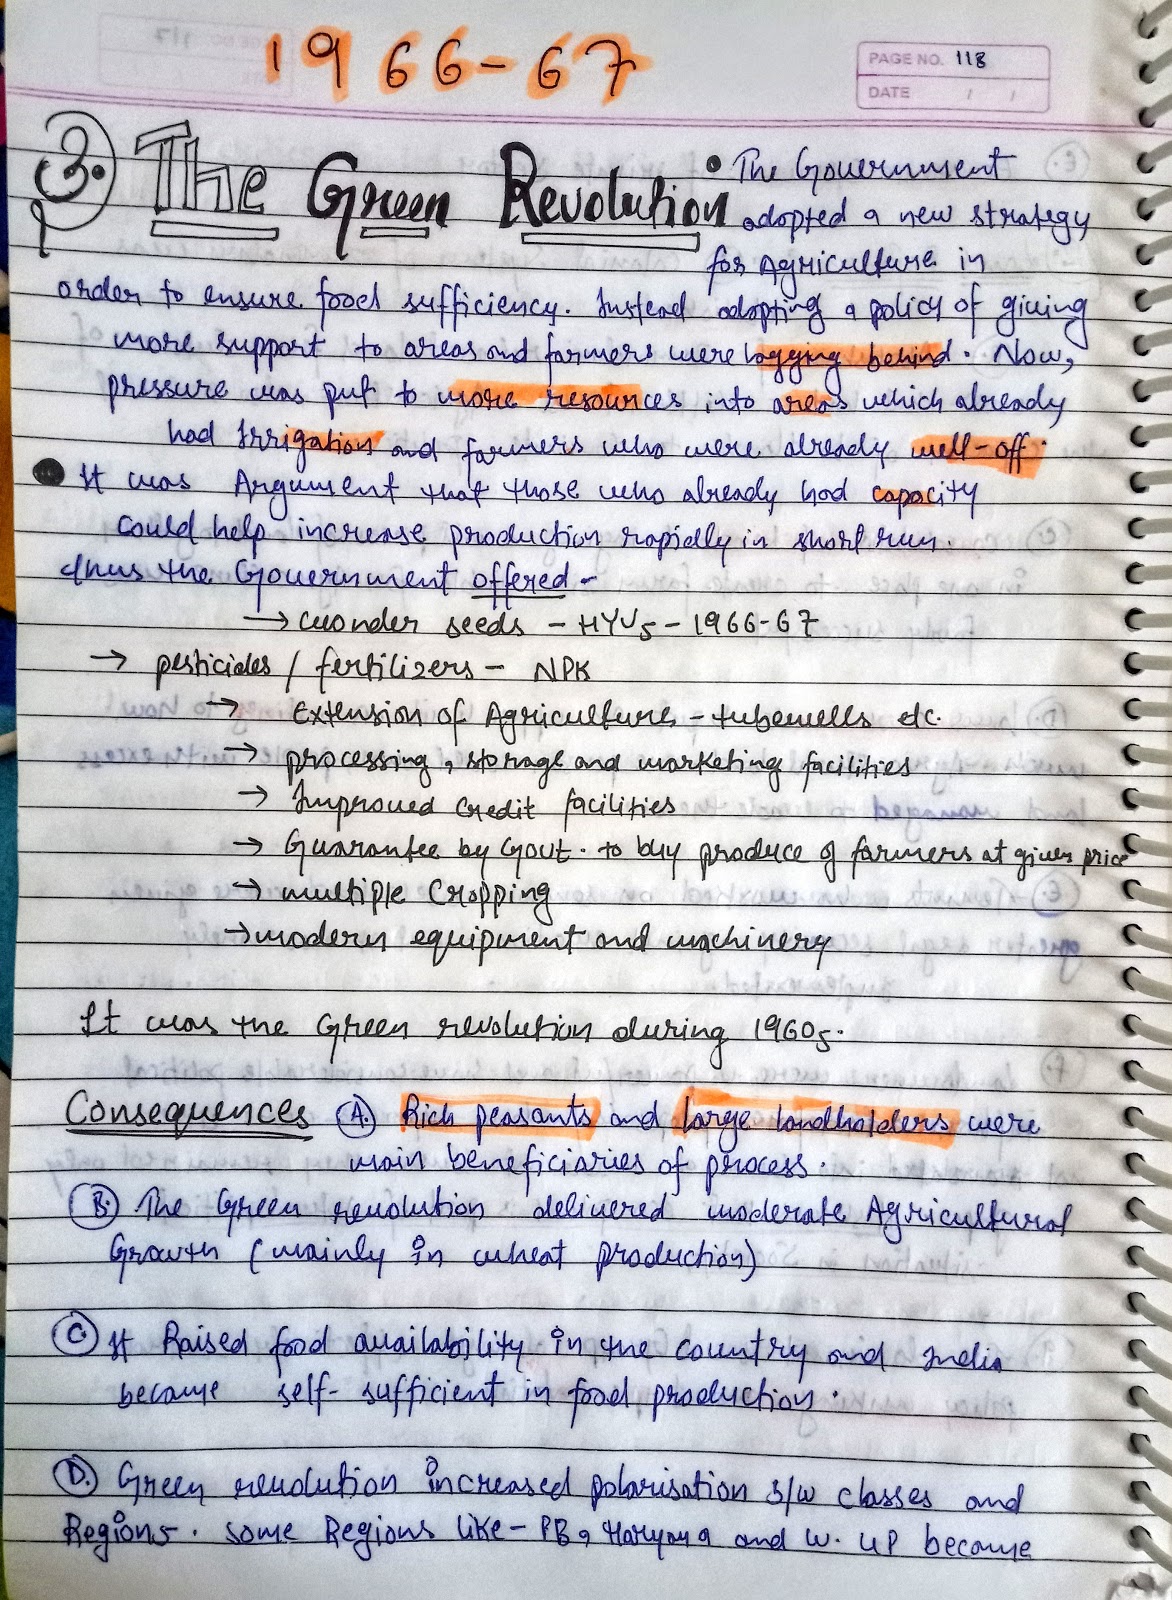 1966-67
PAGE NO. 118
DATE / /
3. The Green Revolution
• The Government
adopted a new strategy
for Agriculture in
order to ensure food sufficiency. Instead adopting a policy of giving
more support to areas and farmers were lagging behind. Now,
pressure was put to more resources into areas which already
had Irrigation and farmers who were already well-off.
• It was Argument that those who already had capacity
could help increase production rapidly in short run.
thus the Government offered -
→ wonder seeds - HYVs - 1966-67
→ pesticides / fertilizers - NPK
→ Extension of Agriculture - tubewells etc.
→ processing, storage and marketing facilities
→ Improved Credit facilities
→ Guarantee by Govt. to buy produce of farmers at given price
→ multiple Cropping
→ modern equipment and machinery
It was the Green revolution during 1960s.
Consequences A. Rich peasants and large landholders were
main beneficiaries of process.
B. The Green revolution delivered moderate Agricultural
Growth (mainly in wheat production)
C. It Raised food availability in the country and India
became self-sufficient in food production.
D. Green revolution increased polarisation b/w classes and
Regions. some Regions like - PB, Haryana and W. UP became